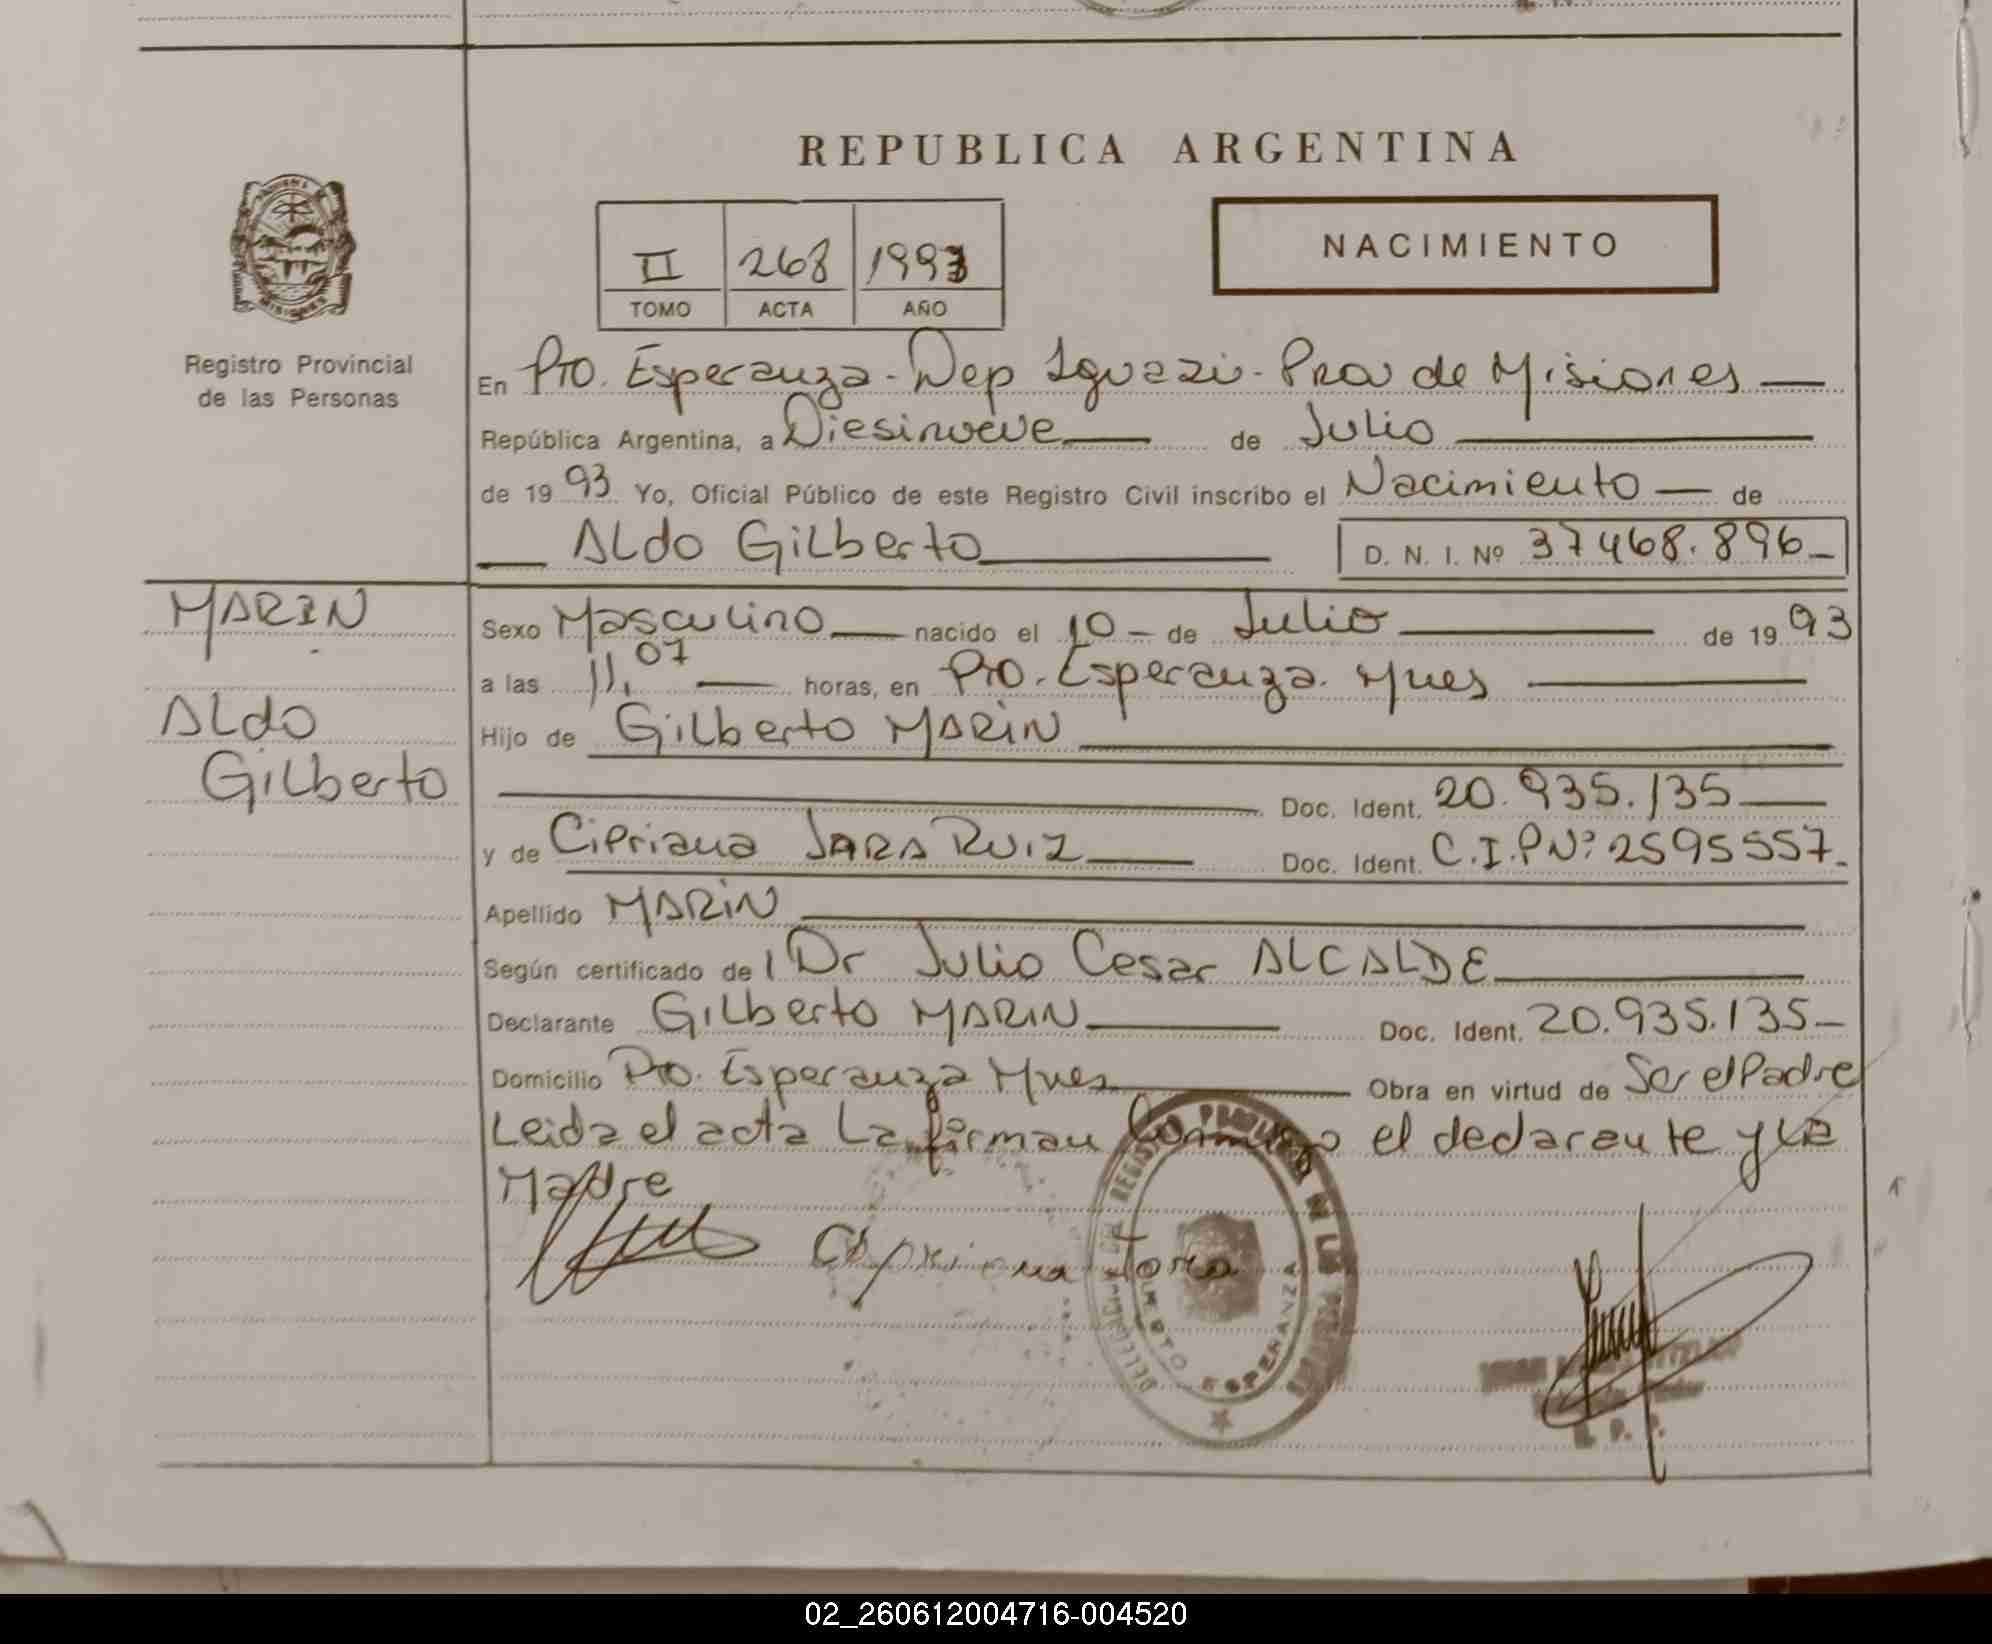 REPUBLICA ARGENTINA
NACIMIENTO
II 268 1993
TOMO ACTA AÑO
Registro Provincial
de las Personas
En Pto. Esperanza - Dep Iguazú - Prov de Misiones
República Argentina, a Diesinueve de Julio
de 19 93 Yo, Oficial Público de este Registro Civil inscribo el Nacimiento de
Aldo Gilberto D. N. I. Nº 37468.896
MARIN
Aldo
Gilberto
Sexo Masculino nacido el 10 de Julio de 19 93
a las 11,07 horas, en Pto. Esperanza. Mnes
Hijo de Gilberto MARIN
Doc. Ident. 20.935.135
y de Cipriana JARA RUIZ Doc. Ident. C.I.P Nº 2595557
Apellido MARIN
Según certificado de Dr Julio Cesar ALCALDE
Declarante Gilberto MARIN Doc. Ident. 20.935.135
Domicilio Pto. Esperanza Mnes Obra en virtud de Ser el Padre
Leida el acta La firman Conmigo el declarante y La
Madre
Cipriana Jara
ESPERANZA
02_260612004716-004520